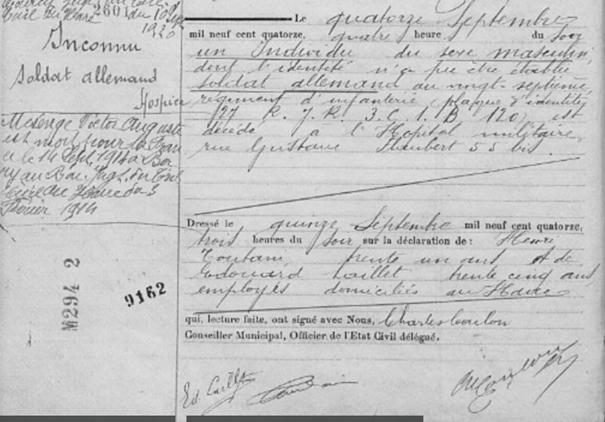 2601 du 10
Cure du Havre
1920
Inconnu
Soldat allemand
Hospice
Mesenge Victor Auguste
est mort pour la
le 14 Sept. 1914 à
au
du Havre du 5
Février 1914
M294 2
9162
Le quatorze Septembre
mil neuf cent quatorze, quatre heure du soir
un Individu du sexe masculin,
dont l'identité n'a pu être établie
soldat allemand au vingt-septième
régiment d'infanterie, plaque d'identité
127 R. J. R. 3. C. 1. B 120, est
décédé à l'Hôpital militaire
rue Gustave Flaubert 55 bis.
Dressé le quinze Septembre mil neuf cent quatorze,
trois heures du soir sur la déclaration de : Henri
trente un ans et de
Edouard Caillet trente cinq ans
employés domiciliés au Havre
qui, lecture faite, ont signé avec Nous, Charles Coulon
Conseiller Municipal, Officier de l'Etat Civil délégué.
Ed. Caillet